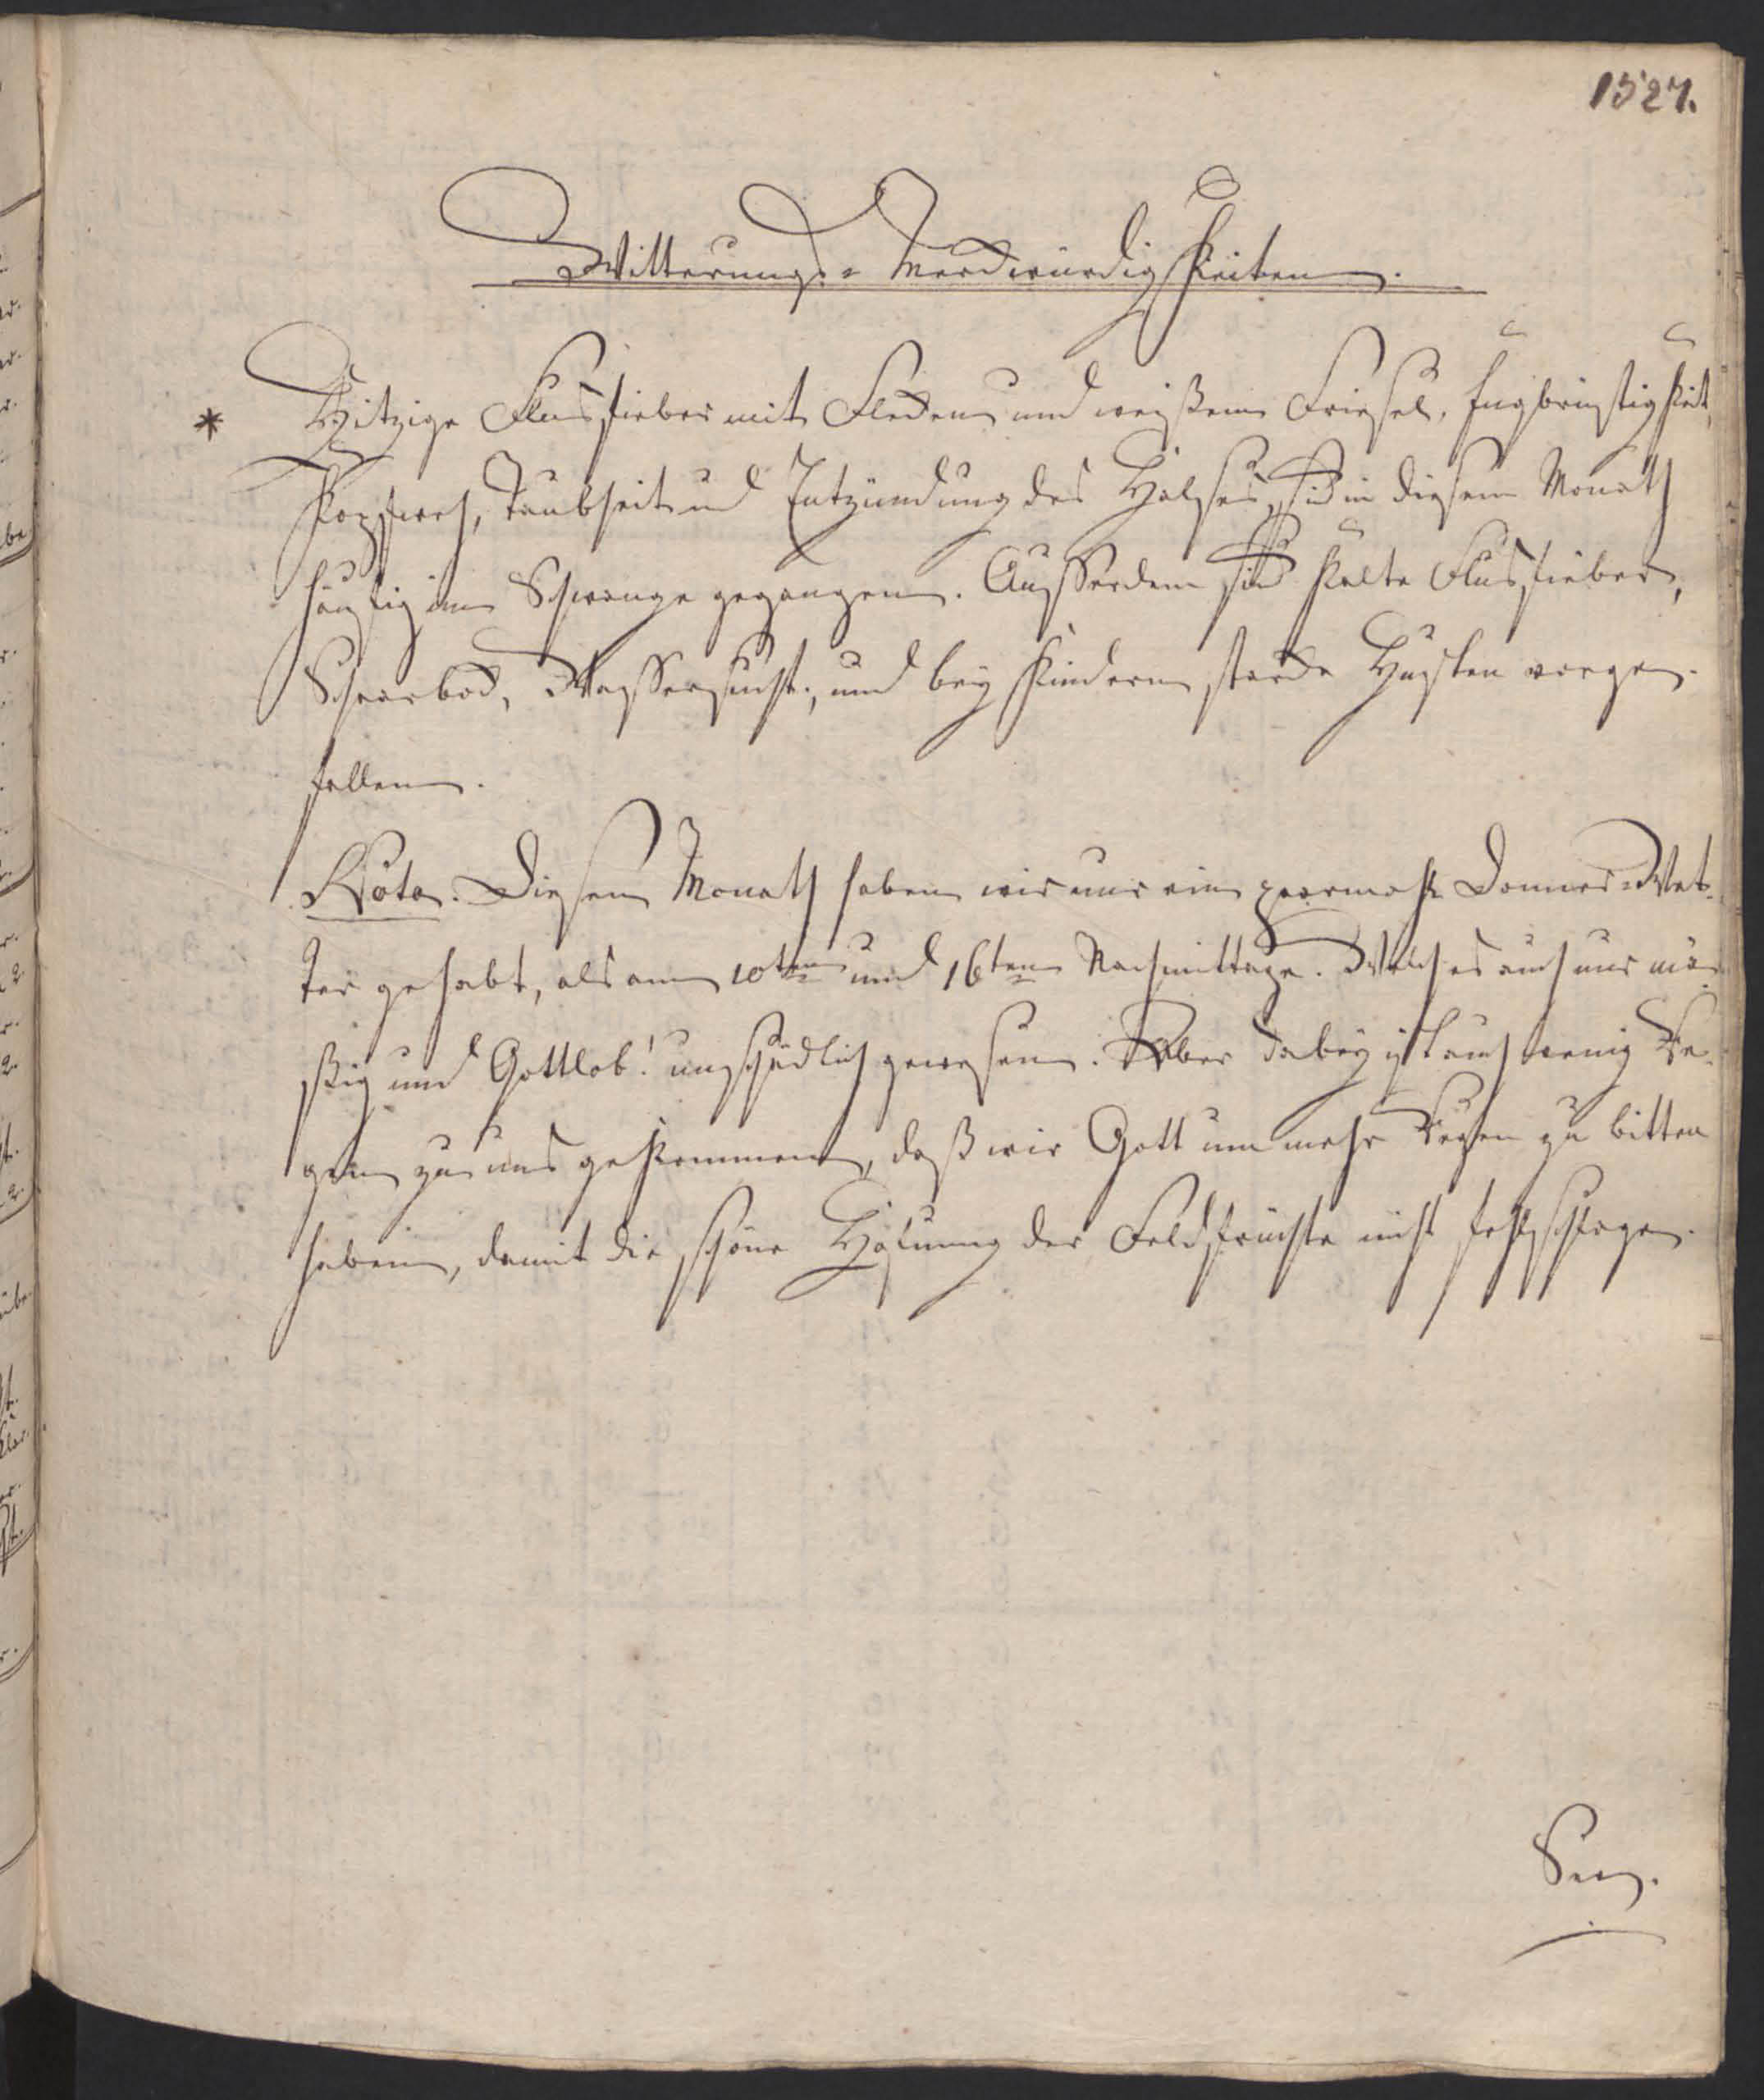 1527.
Witterungs-Merckwürdigkeiten.
* Hitzige Flusfieber mit Flecken und weißem Friesel, Engbrüstigkeit,
Kopfweh, Taubheit und Entzündung des Halses, sind in diesem Monath
häufig im Schwange gegangen. Ausserdem sind kalte Flusfieber,
Schaarbock, Wassersucht, und bey Kindern starcke Husten vorge-
fallen.
Nota. Diesen Monath haben wir nur ein paarmahl Donner-Wet-
ter gehabt, als am 10ten und 16ten Nachmittage. Welches auch nur mä-
ßig und Gottlob! unschädlich gewesen. Aber dabey ist auch wenig Re-
gen zu uns gekommen, daß wir Gott um mehr Regen zu bitten
haben, damit die schöne Hofnung der Feldfrüchte nicht fehlschlage.